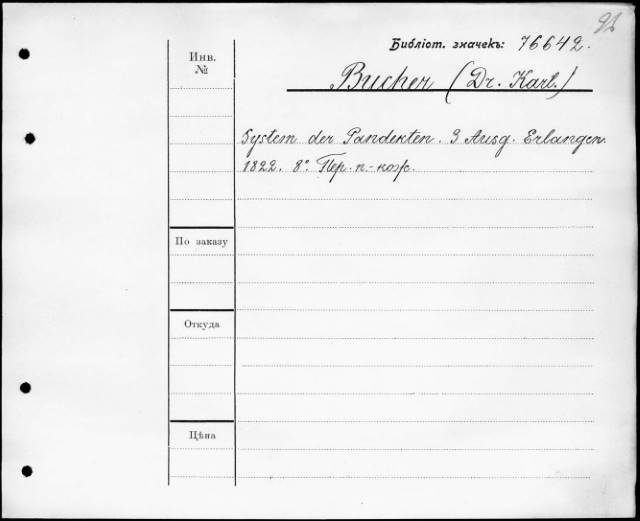 92
Библіот. значекъ: 76642.
Инв.
№
Bucher (Dr. Karl.)
System der Pandekten. 3 Ausg. Erlangen.
1822. 8°. Пер. п.-кож.
По заказу
Откуда
Цѣна